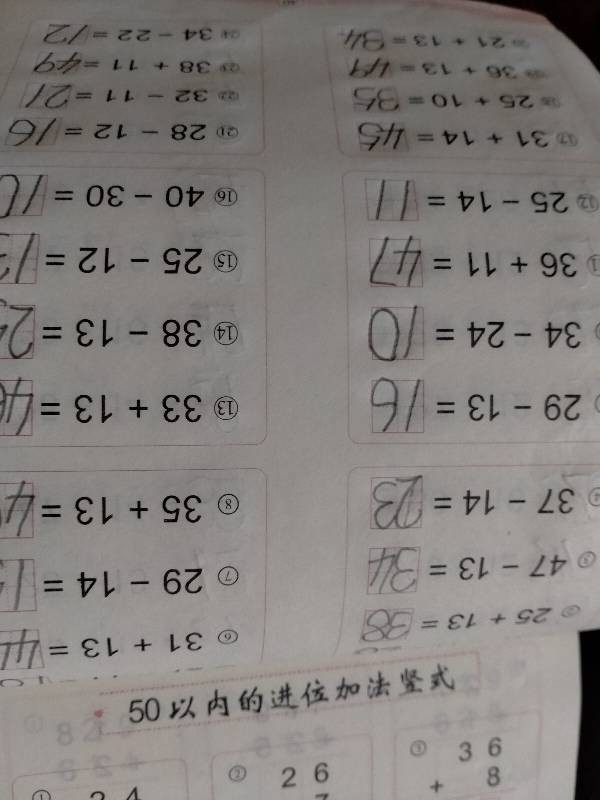 ② 25 + 13 = 38
③ 47 − 13 = 34
④ 37 − 14 = 23
⑥ 31 + 13 = 44
⑦ 29 − 14 = 1
⑧ 35 + 13 = 4
29 − 13 = 16
34 − 24 = 10
36 + 11 = 47
⑫ 25 − 14 = 11
⑬ 33 + 13 = 46
⑭ 38 − 13 = 2
⑮ 25 − 12 = 1
⑯ 40 − 30 = 10
⑰ 31 + 14 = 45
⑱ 25 + 10 = 35
⑲ 36 + 13 = 49
⑳ 21 + 13 = 34
㉑ 28 − 12 = 16
㉒ 32 − 11 = 21
㉓ 38 + 11 = 49
㉔ 34 − 22 = 12
50以内的进位加法竖式
① 2 4
② 2 6
③ 3 6
+ 8